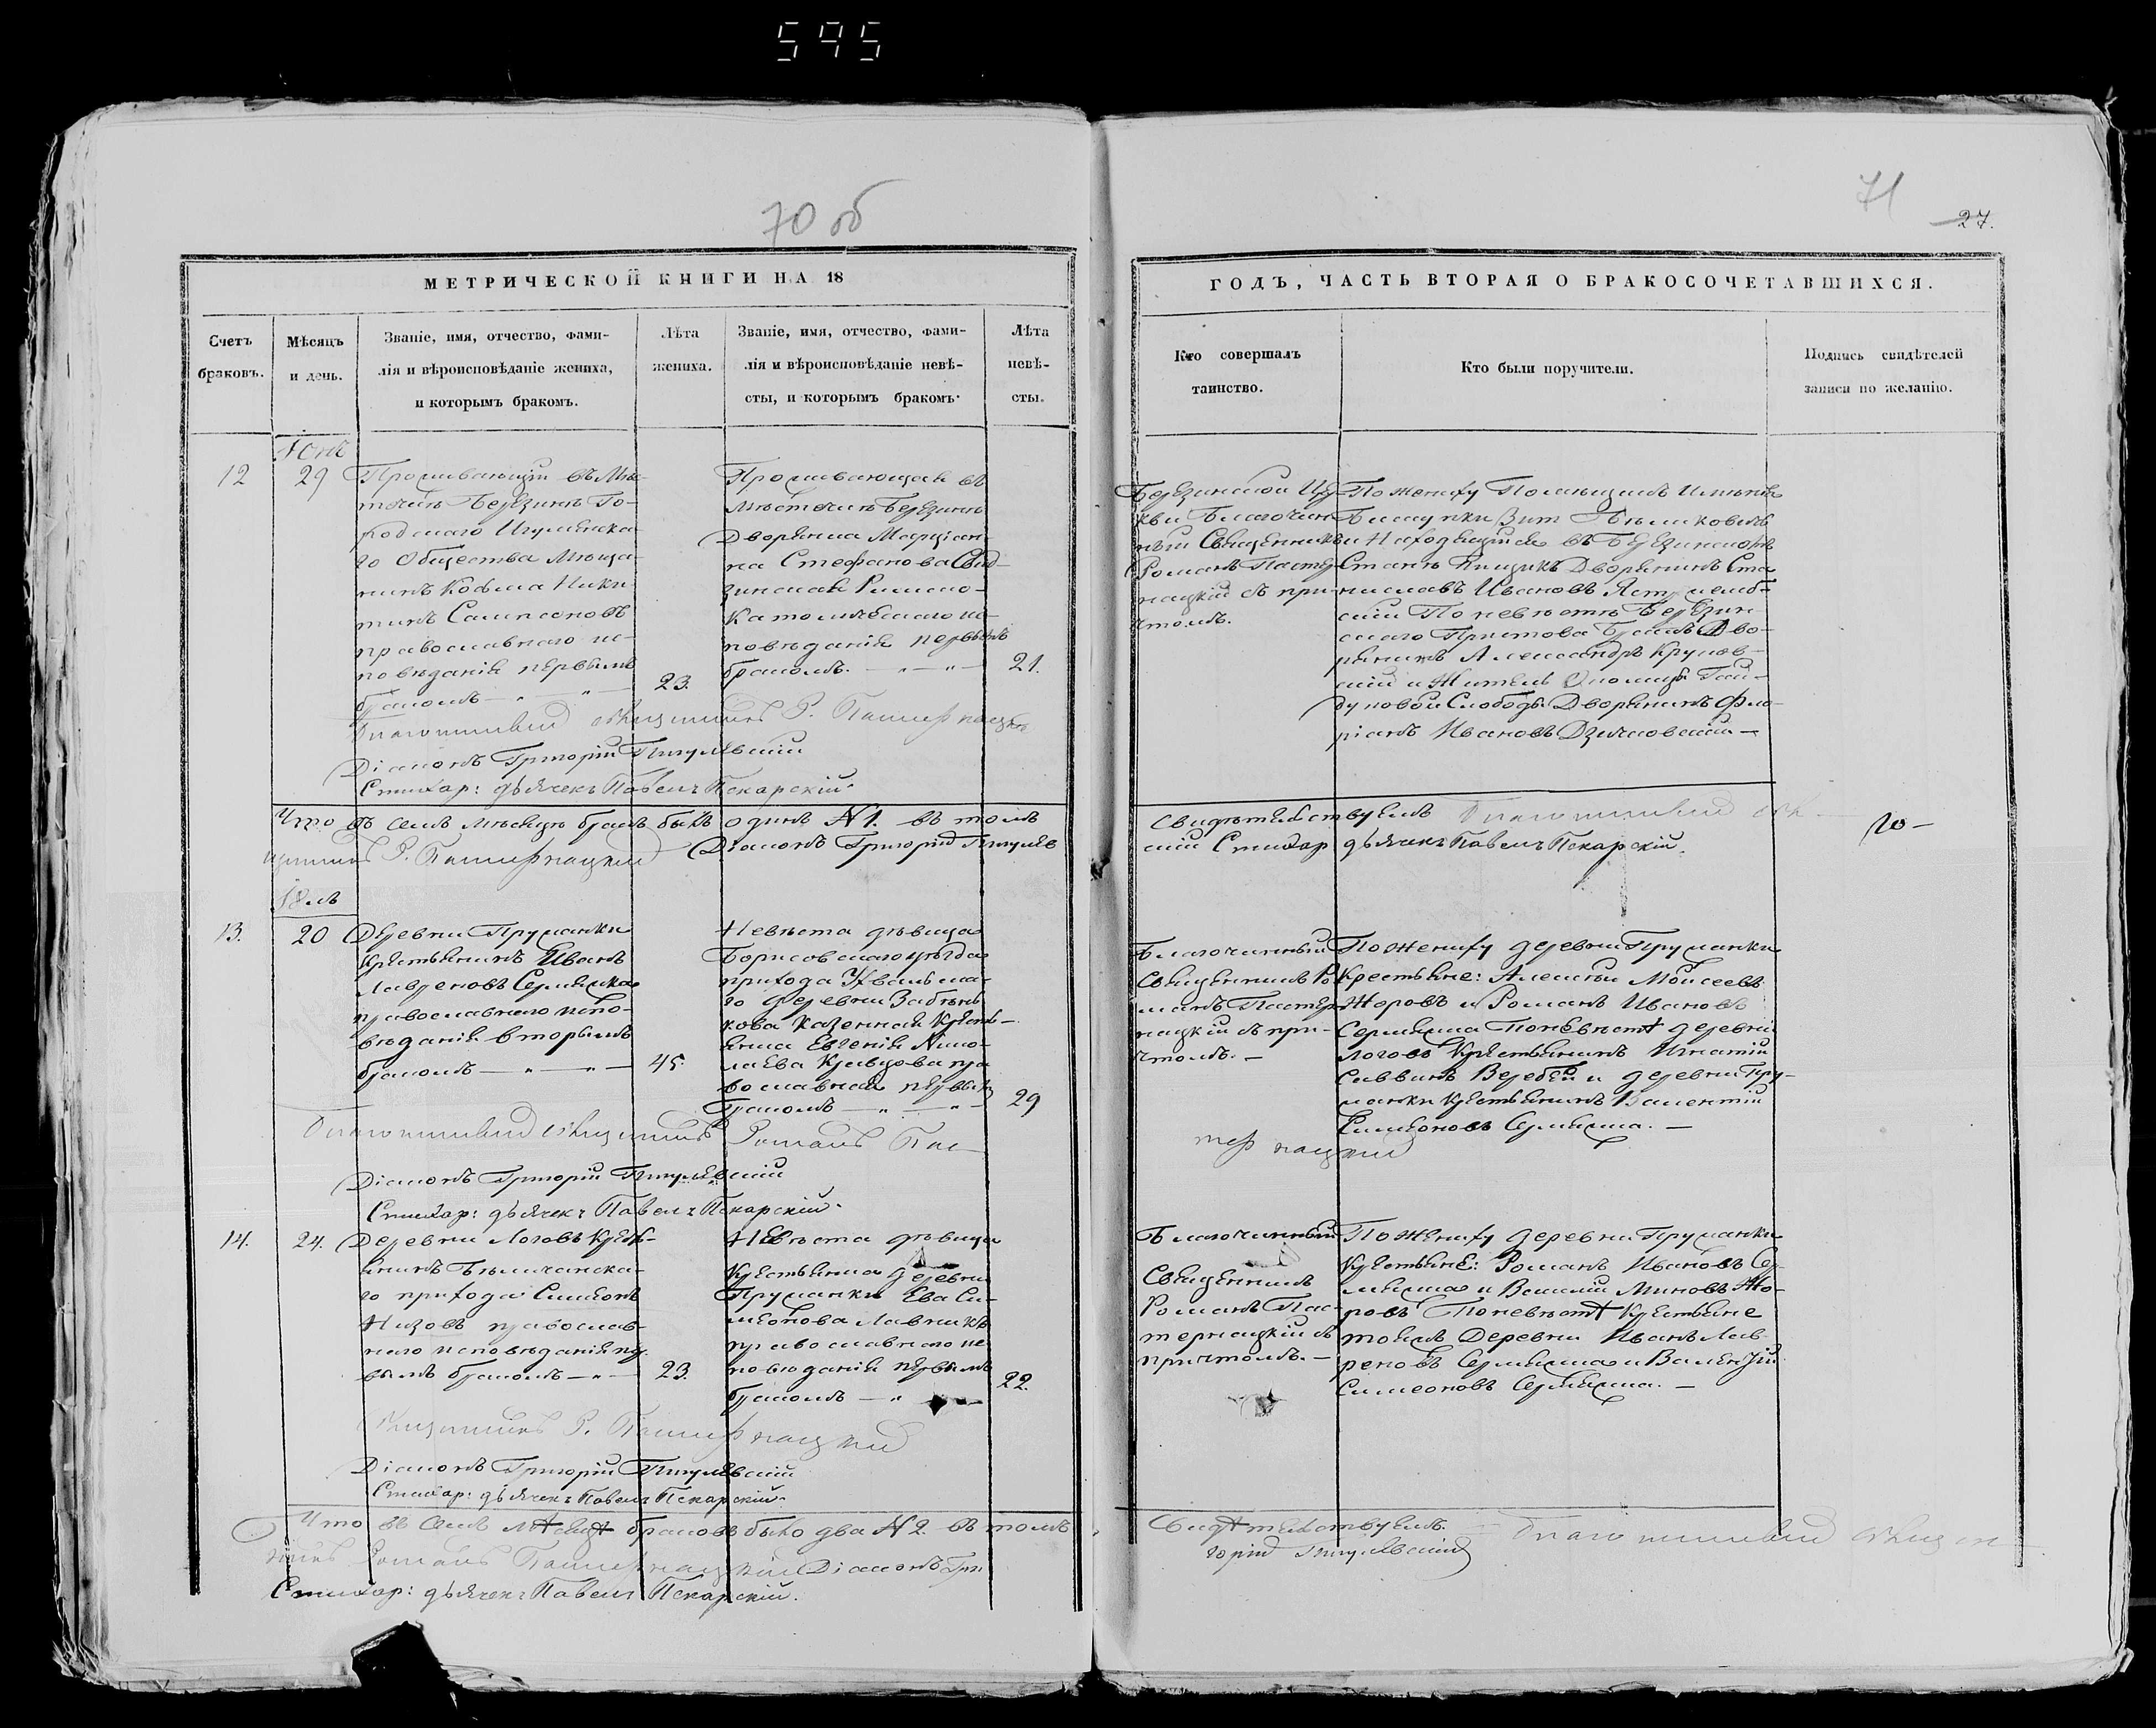 595
70 об
71
27.
МЕТРИЧЕСКОЙ КНИГИ НА 18
ГОДЪ, ЧАСТЬ ВТОРАЯ О БРАКОСОЧЕТАВШИХСЯ.
Счетъ
браковъ.
Мѣсяцъ
и день.
Званіе, имя, отчество, фами-
лія и вѣроисповѣданіе жениха,
и которымъ бракомъ.
Лѣта
жениха.
Званіе, имя, отчество, фами-
лія и вѣроисповѣданіе невѣ-
сты, и которымъ бракомъ.
Лѣта
невѣ-
сты.
Кто совершалъ
таинство.
Кто были поручители.
Подпись свидѣтелей
записи по желанію.
12
29
Проживающій въ Мѣ-
Березинѣ Го-
родскаго Игуменска-
го Общества Мѣща-
нинъ Козьма Ники-
тинъ Сампсоновъ
православнаго ис-
повѣданія первымъ
бракомъ — " — " —
23.
Проживающая въ
Мѣстечкѣ Березинѣ
Дворянка Марціан-
на Стефанова
Римско-
Католическаго ис-
повѣданія первымъ
бракомъ. — " — " —
21.
Березинской Цер-
кви Благочин-
ный Священникъ
Романъ Пастер-
нацкій съ при-
чтомъ.
По жениху Помѣщикъ
и Находящійся въ Березинскомъ
Станѣ Дворянинъ Ста-
ниславъ Ивановъ
По невѣстѣ Березин-
скаго Пристова Братъ Дво-
рянинъ Александръ
скій и Житель Околицы
Слободы Дворянинъ Фло-
ріанъ Ивановъ
Священникъ Р. Пастернацкій
Діаконъ Григорій Пигулевскій
Стихар: дьячекъ Павелъ Пекарскій.
Что въ семъ мѣсяцѣ бракъ былъ одинъ №1. въ томъ
Свидѣтельствуемъ Благочинный
Р. Пастернацкій Діаконъ Григорій Пигулев
скій Стихар дьячекъ Павелъ Пекарскій.
13.
20
Деревни Пруманки
Крестьянинъ Иванъ
Лавреновъ
православнаго испо-
вѣданія вторымъ
бракомъ — " — " —
45.
Невѣста дѣвица
Борисовскаго уѣзда
прихода
го деревни
казенная Кресть-
янка Евгенія Нико-
лаева Кравцова пра
вославная первымъ
бракомъ — " — " —
29
Благочинный
Священникъ Ро
манъ Пастер-
нацкій съ при-
чтомъ. —
По жениху деревни Пруманки
Крестьяне: Алексѣй Мойсеевъ
Жоровъ и Романъ Ивановъ
По невѣстѣ деревни
Логовъ Крестьянинъ Игнатій
Саввинъ Веребей и деревни Пру-
манки Крестьянинъ Валентій
Симеоновъ
Благочинный Священникъ Романъ Пас-
тернацкій
Діаконъ Григорій Пигулевскій
Стихар: дьячекъ Павелъ Пекарскій.
14.
24.
Деревни Логовъ Кресть-
янинъ
го прихода Симеонъ
Низовъ православ-
наго исповѣданія пер
вымъ бракомъ — " —
23.
Невѣста дѣвица
Крестьянка деревни
Пруманки Ева Си-
меонова
православнаго ис
повѣданія первымъ
бракомъ — "
22.
Благочинный
Священникъ
Романъ Пас-
тернацкій съ
причтомъ. —
По жениху деревни Пруманки
Крестьяне: Романъ Ивановъ
и Василій Миновъ Жо-
ровъ По невѣстѣ Крестьяне
тоежъ Деревни Иванъ Лав-
реновъ и Валентій
Симеоновъ
Священникъ Р. Пастернацкій
Діаконъ Григорій Пигулевскій
Стихар: дьячекъ Павелъ Пекарскій.
Что въ семъ Мѣсяцѣ браковъ было два №2. въ томъ
Свидѣтельствуемъ. Благочинный Священ
никъ Романъ Пастернацкій Діаконъ Гри
горій Пигулевскій
Стихар: дьячекъ Павелъ Пекарскій.